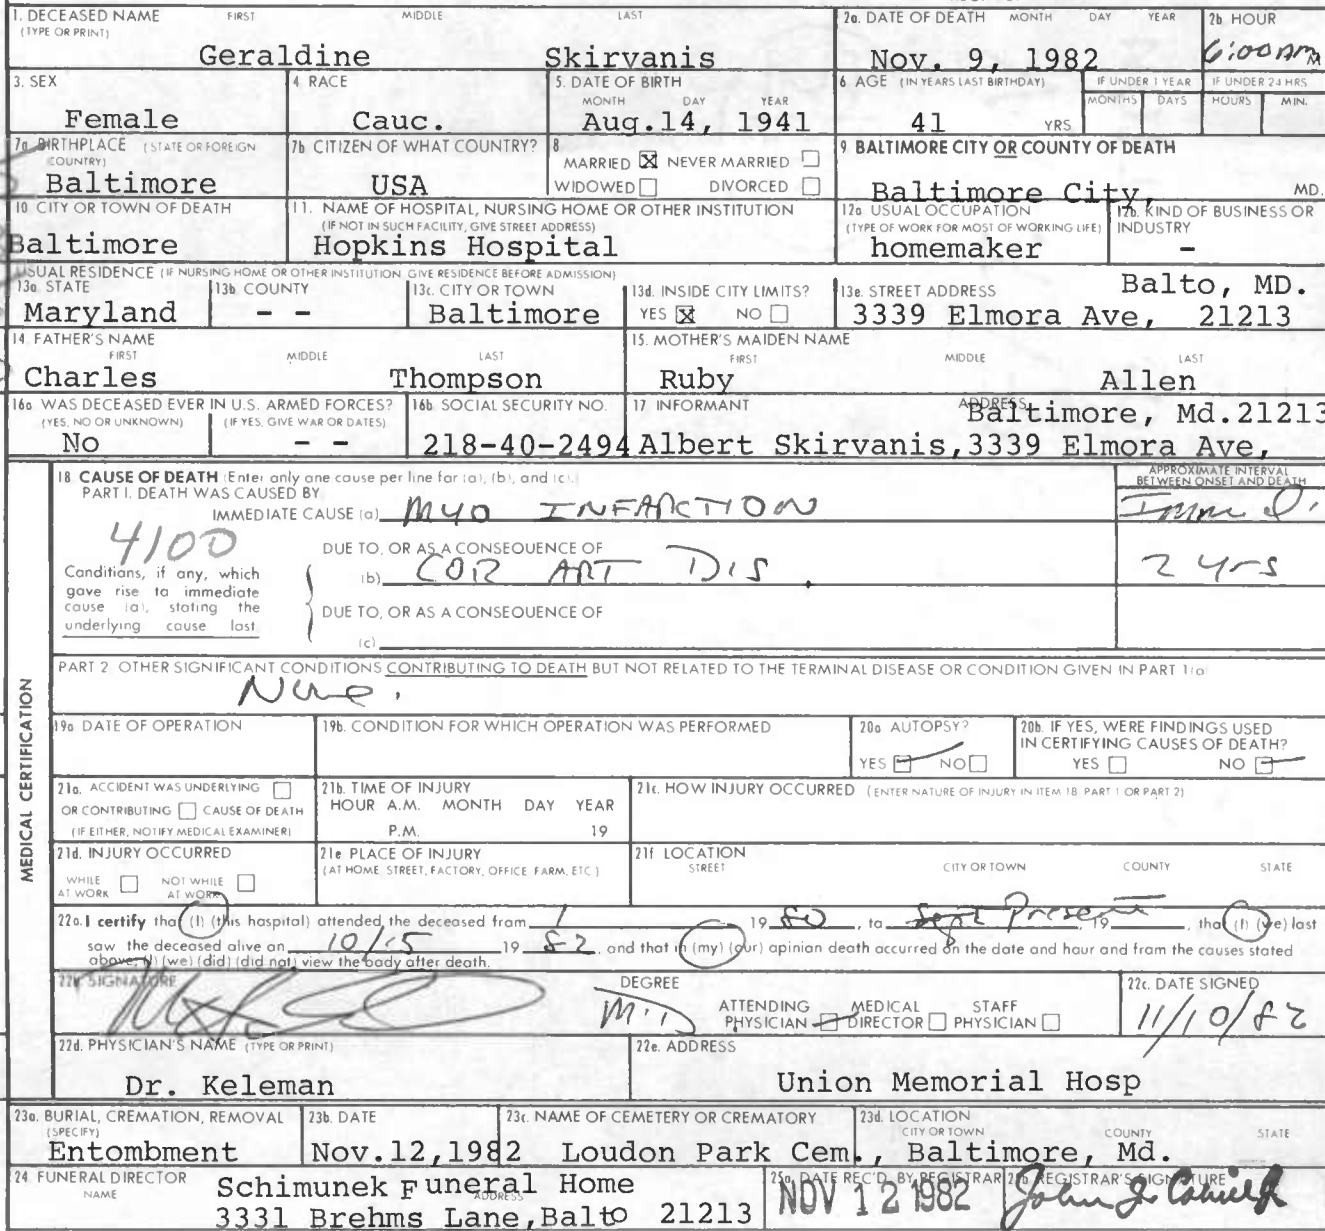 1. DECEASED NAME FIRST MIDDLE LAST
(TYPE OR PRINT)
Geraldine Skirvanis
2a. DATE OF DEATH MONTH DAY YEAR
Nov. 9, 1982
2b HOUR
6:00 AM M
3. SEX
Female
4 RACE
Cauc.
5. DATE OF BIRTH
MONTH DAY YEAR
Aug.14, 1941
6 AGE (IN YEARS LAST BIRTHDAY)
41 YRS
IF UNDER 1 YEAR
MONTHS DAYS
IF UNDER 24 HRS
HOURS MIN.
7a BIRTHPLACE (STATE OR FOREIGN
COUNTRY)
Baltimore
7b CITIZEN OF WHAT COUNTRY?
USA
8
MARRIED ☒ NEVER MARRIED ☐
WIDOWED ☐ DIVORCED ☐
9 BALTIMORE CITY OR COUNTY OF DEATH
Baltimore City, MD.
10 CITY OR TOWN OF DEATH
Baltimore
11. NAME OF HOSPITAL, NURSING HOME OR OTHER INSTITUTION
(IF NOT IN SUCH FACILITY, GIVE STREET ADDRESS)
Hopkins Hospital
12a USUAL OCCUPATION
(TYPE OF WORK FOR MOST OF WORKING LIFE)
homemaker
12b. KIND OF BUSINESS OR
INDUSTRY
-
USUAL RESIDENCE (IF NURSING HOME OR OTHER INSTITUTION GIVE RESIDENCE BEFORE ADMISSION)
13a STATE
Maryland
13b COUNTY
- -
13c. CITY OR TOWN
Baltimore
13d. INSIDE CITY LIMITS?
YES ☒ NO ☐
13e. STREET ADDRESS Balto, MD.
3339 Elmora Ave, 21213
14 FATHER'S NAME
FIRST MIDDLE LAST
Charles Thompson
15. MOTHER'S MAIDEN NAME
FIRST MIDDLE LAST
Ruby Allen
16a WAS DECEASED EVER IN U.S. ARMED FORCES?
(YES, NO OR UNKNOWN) (IF YES, GIVE WAR OR DATES)
No - -
16b. SOCIAL SECURITY NO.
218-40-2494
17 INFORMANT ADDRESS
Baltimore, Md.21213
Albert Skirvanis,3339 Elmora Ave,
MEDICAL CERTIFICATION
18 CAUSE OF DEATH (Enter only one cause per line for (a), (b), and (c).)
PART I. DEATH WAS CAUSED BY
APPROXIMATE INTERVAL
BETWEEN ONSET AND DEATH
IMMEDIATE CAUSE (a) MYO INFARCTION
4100
Conditions, if any, which
gave rise to immediate
cause (a), stating the
underlying cause last
DUE TO, OR AS A CONSEQUENCE OF
(b) COR ART DIS 2 yrs
DUE TO, OR AS A CONSEQUENCE OF
(c)
PART 2 OTHER SIGNIFICANT CONDITIONS CONTRIBUTING TO DEATH BUT NOT RELATED TO THE TERMINAL DISEASE OR CONDITION GIVEN IN PART 1(a)
None.
19a DATE OF OPERATION
19b. CONDITION FOR WHICH OPERATION WAS PERFORMED
20a AUTOPSY?
YES ☐ NO ☐
20b. IF YES, WERE FINDINGS USED
IN CERTIFYING CAUSES OF DEATH?
YES ☐ NO ☐
21a. ACCIDENT WAS UNDERLYING ☐
OR CONTRIBUTING ☐ CAUSE OF DEATH
(IF EITHER, NOTIFY MEDICAL EXAMINER)
21b. TIME OF INJURY
HOUR A.M. MONTH DAY YEAR
P.M. 19
21c. HOW INJURY OCCURRED (ENTER NATURE OF INJURY IN ITEM 18 PART 1 OR PART 2)
21d. INJURY OCCURRED
WHILE ☐ NOT WHILE ☐
AT WORK AT WORK
21e PLACE OF INJURY
(AT HOME, STREET, FACTORY, OFFICE FARM, ETC)
21f LOCATION
STREET CITY OR TOWN COUNTY STATE
22a. I certify that (I) (this hospital) attended the deceased from 1 19 80, to Sept Present, 19, that (I) (we) last
saw the deceased alive on 10/15 19 82, and that in (my) (our) opinion death occurred on the date and hour and from the causes stated
above. (I) (we) (did) (did not) view the body after death.
22b SIGNATURE
DEGREE
M.D
ATTENDING PHYSICIAN ☐ MEDICAL DIRECTOR ☐ STAFF PHYSICIAN ☐
22c. DATE SIGNED
11/10/82
22d. PHYSICIAN'S NAME (TYPE OR PRINT)
Dr. Keleman
22e. ADDRESS
Union Memorial Hosp
23a. BURIAL, CREMATION, REMOVAL
(SPECIFY)
Entombment
23b. DATE
Nov.12,1982
23c. NAME OF CEMETERY OR CREMATORY
Loudon Park Cem.,
23d. LOCATION
CITY OR TOWN COUNTY STATE
Baltimore, Md.
24 FUNERAL DIRECTOR
NAME ADDRESS
Schimunek Funeral Home
3331 Brehms Lane,Balto 21213
25a. DATE REC'D. BY REGISTRAR
NOV 12 1982
25b REGISTRAR'S SIGNATURE